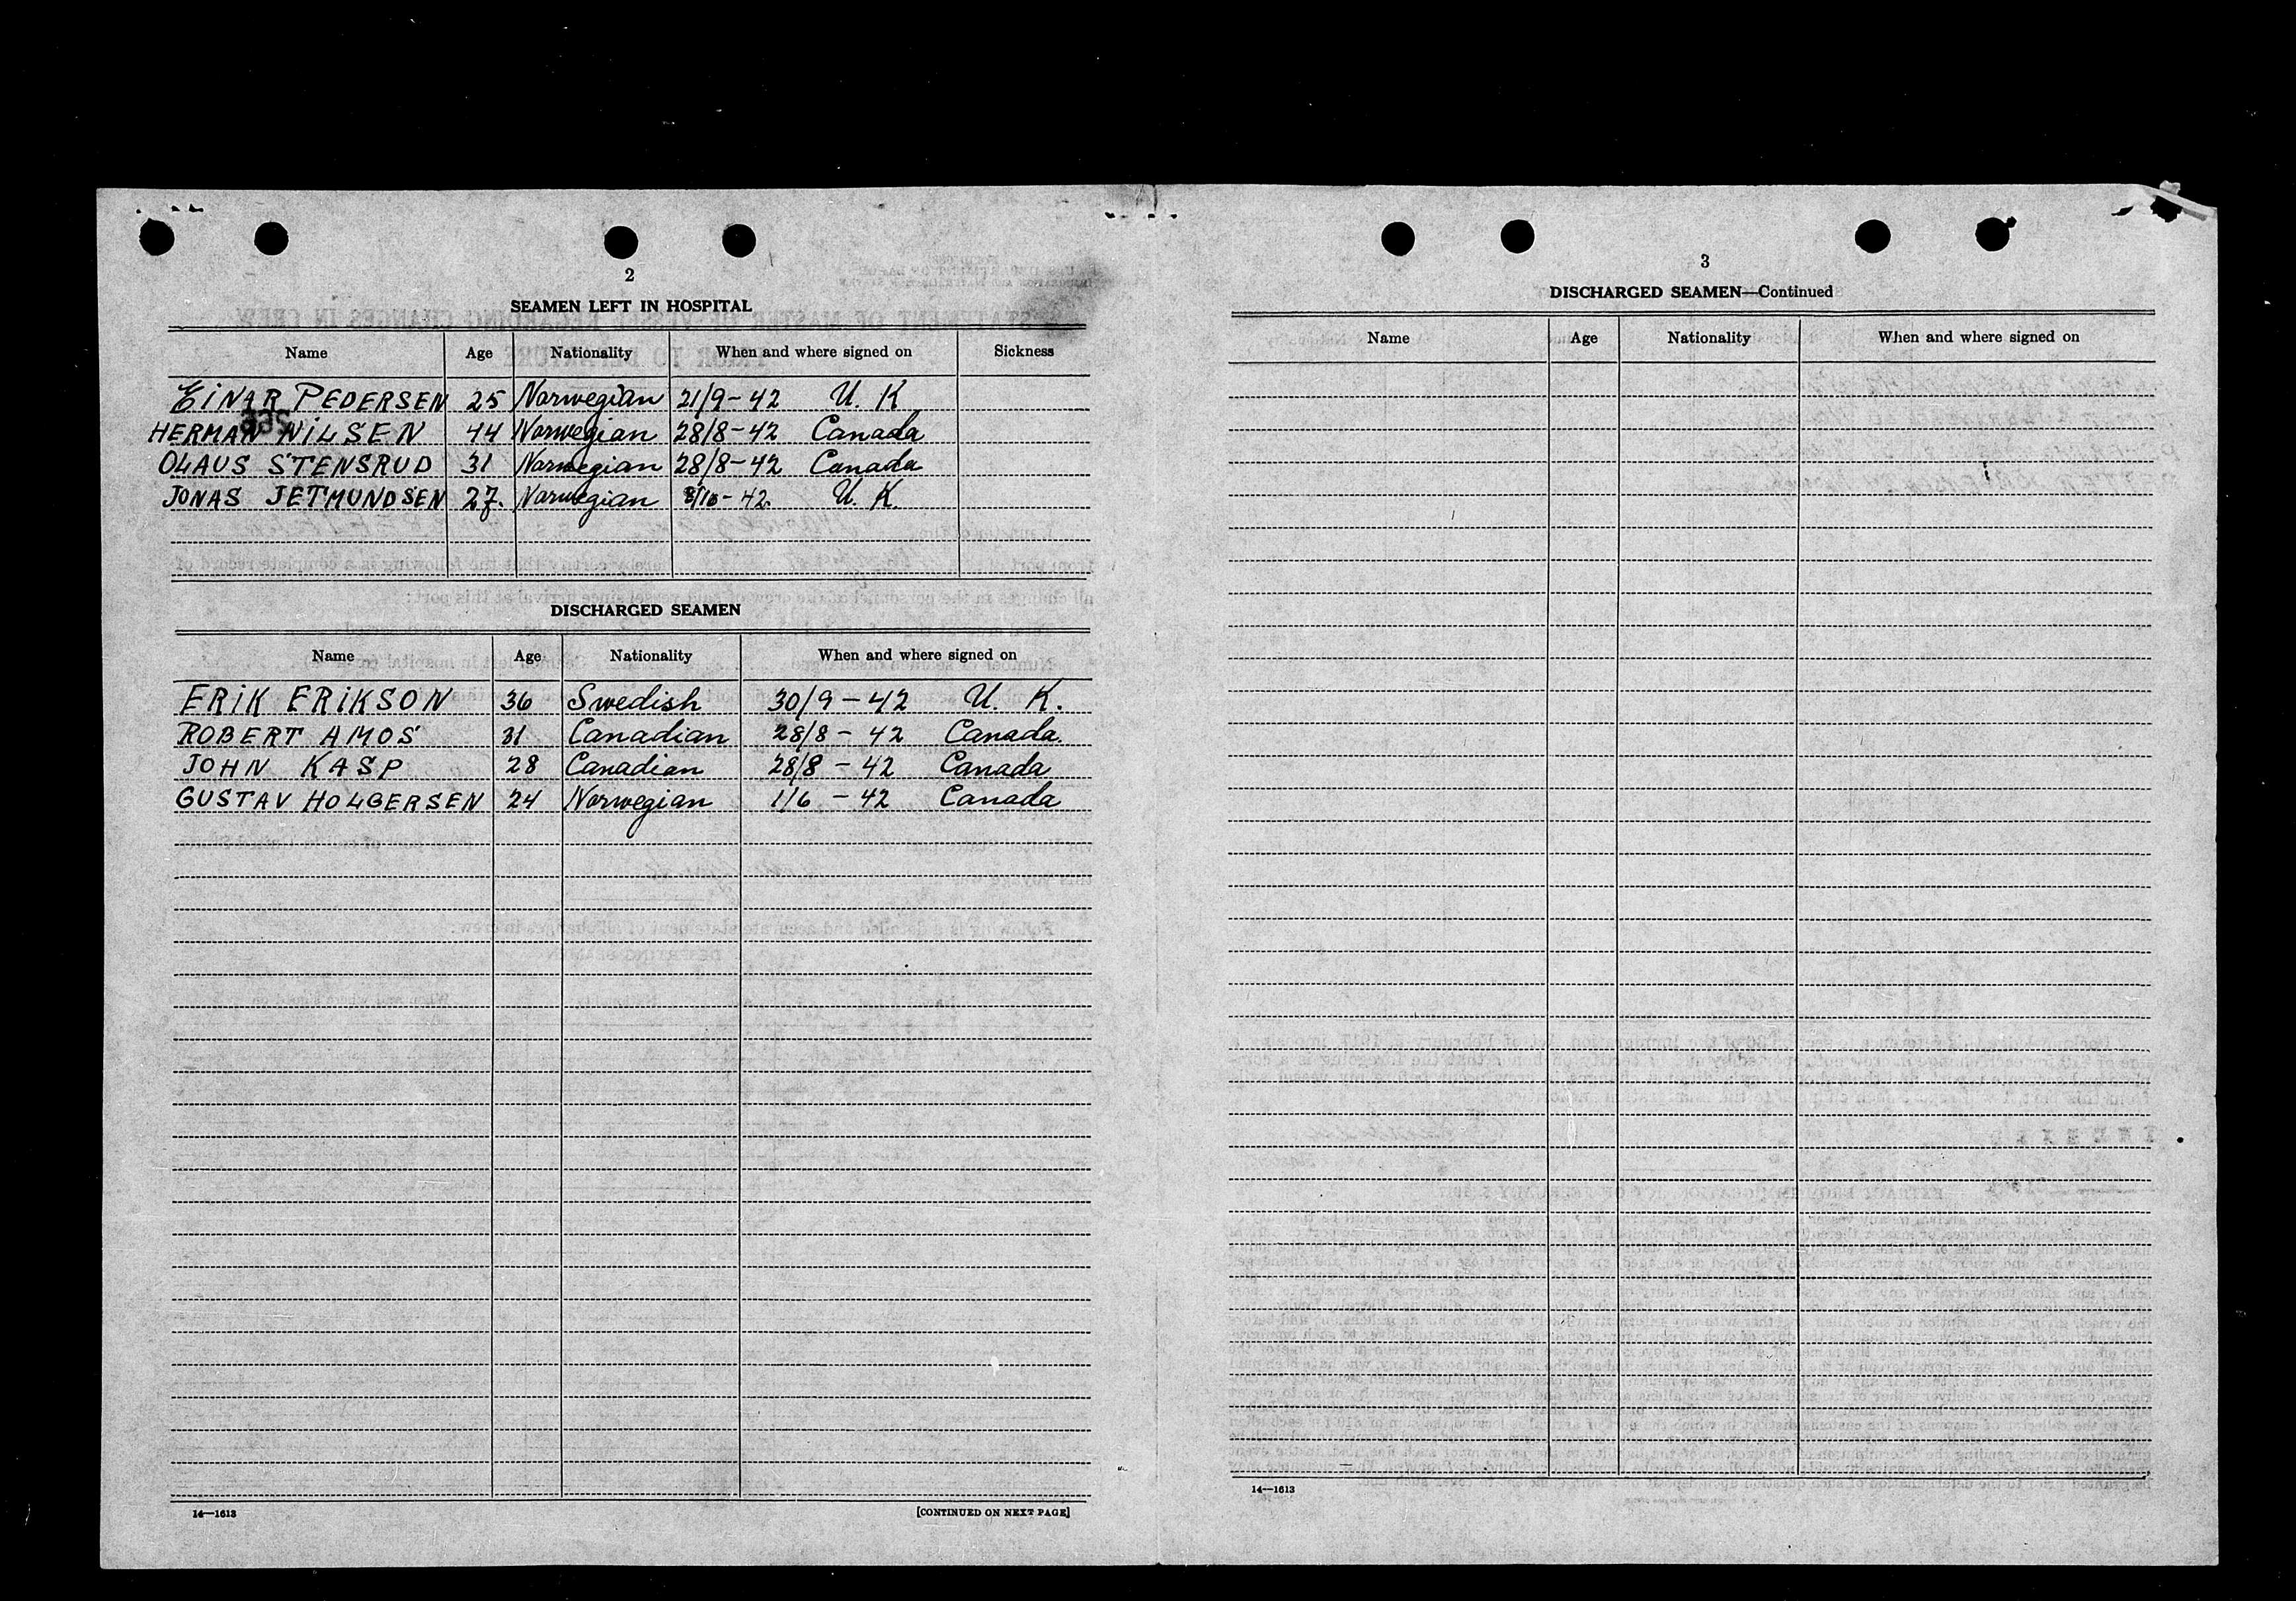 2
SEAMEN LEFT IN HOSPITAL
Name Age Nationality When and where signed on Sickness
EINAR PEDERSEN 25 Norwegian 21/9-42 U. K
HERMAN NILSEN 44 Norwegian 28/8-42 Canada
OLAUS STENSRUD 31 Norwegian 28/8-42 Canada
JONAS JETMUNDSEN 27. Norwegian 8/10-42. U. K.
DISCHARGED SEAMEN
Name Age Nationality When and where signed on
ERIK ERIKSON 36 Swedish 30/9-42 U. K.
ROBERT AMOS 31 Canadian 28/8-42 Canada.
JOHN KASP 28 Canadian 28/8-42 Canada
GUSTAV HOLGERSEN 24 Norwegian 1/6-42 Canada
14—1613 [CONTINUED ON NEXT PAGE]
3
DISCHARGED SEAMEN—Continued
Name Age Nationality When and where signed on
14—1613